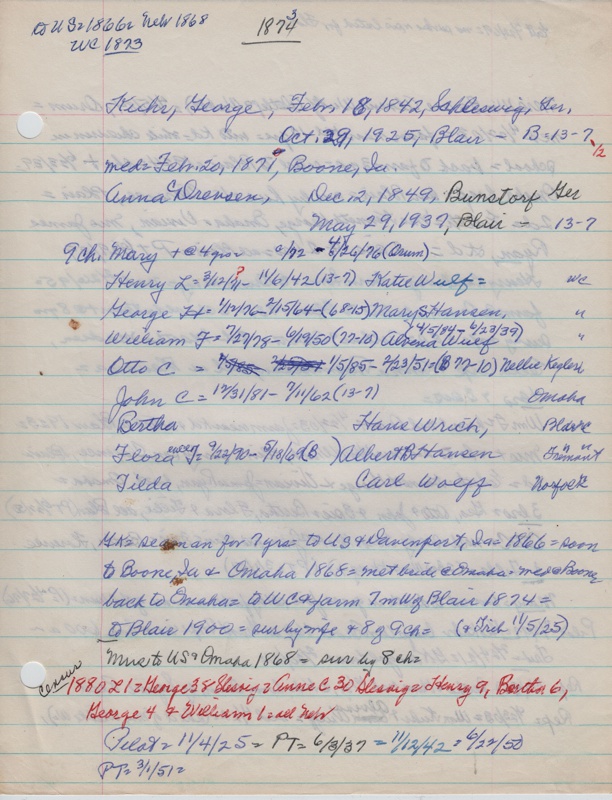 to US= 1866 Neb 1868
1874 3
WC 1873
Kuhr, George, Febr. 18, 1842, Schleswig, Ger,
Oct. 29, 1925, Blair - B=13-7
1/2
med= Feb. 20, 1871, Boone, Ia.
Anna C Drevsen, Dec. 12, 1849, Bunstorf Ger
May 29, 1937, Blair - 13-7
9 ch. Mary + @ 4 yrs= /72 - 4/26/76 (Orum)
Henry L= 3/12/71? - 11/6/42 (13-7) Katie Wulf= WC
George H= 1/12/76 - 2/15/64 - (68-15) Mary S Hansen, "
(4/5/84 - 4/23/39)
William F= 7/27/78 - 6/19/50 (77-10) Alvena Wulf "
Otto C = 1/5/85 - 2/23/51= (B 77-10) Nellie Keyler
John C= 12/31/81 - 7/11/62 (13-7) Omaha
Bertha Hans Wrich, Blair
Flora J= 9/22/90 - 5/18/69 (B ) Albert B Hansen Fremont
Tilda Carl Wolff Norfolk
GK= seaman for 7 yrs= to US & Davenport, Ia= 1866= soon
to Boone, Ia & Omaha 1868= met bride @ Omaha= med @ Boone,
back to Omaha= to WC & farm 7 m W of Blair 1874=
to Blair 1900= sur by wife & 8 of 9 ch= (& Trib 11/5/25)
Mrs= to US & Omaha 1868= sur by 8 ch=
Census
1880 L1= George 38 Slesvig= Anne C 30 Slesvig= Henry 9, Bertha 6,
George 4 & William 1= all Neb
Pilot= 11/4/25= PT= 6/3/37 = 11/12/42 = 6/22/50
PT= 3/1/51=